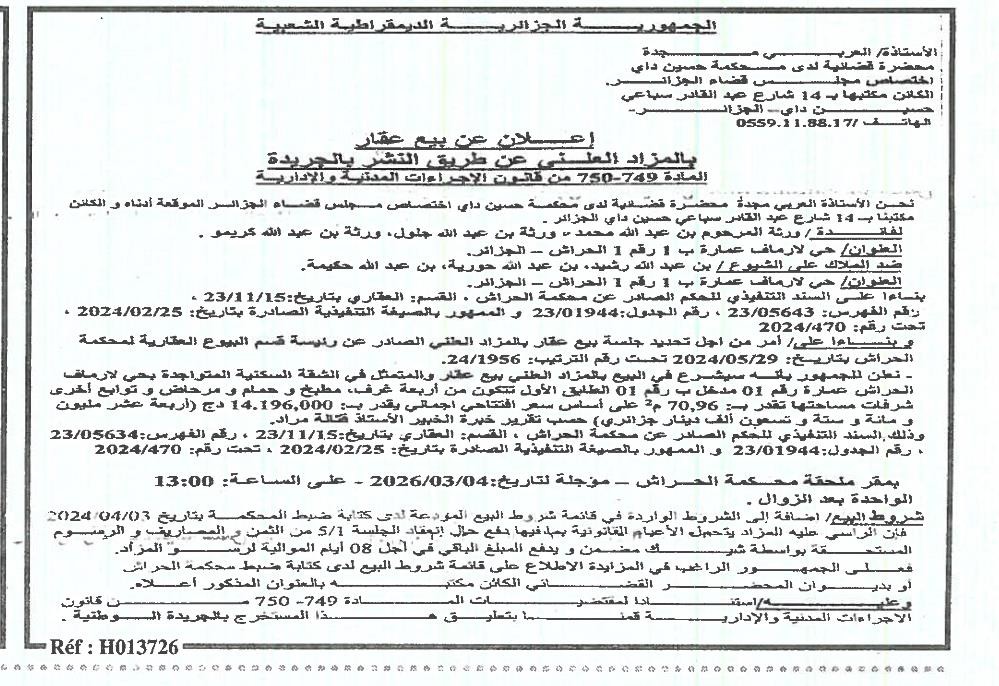 الجمهوريــــة الجزائريــــة الديمقراطية الشعبية
الأستاذة/ العربــــي مـــجدة
محضرة قضائية لدى محكمة حسين داي
اختصاص مجلــس قضاء الجزائــر.
الكائن مكتبها بـ 14 شارع عبد القادر سباعي
حسيــن داي- الجزائــر-
الهاتف /0559.11.88.17
إعــلان عن بيع عقار
بالمزاد العلــني عن طريق النشر بالجريدة
المادة 749-750 من قانون الإجراءات المدنية والإدارية
نحن الأستاذة العربي مجدة محضرة قضائية لدى محكمة حسين داي اختصاص مجلس قضاء الجزائر الموقعة أدناه و الكائن
مكتبنا بـ 14 شارع عبد القادر سباعي حسين داي الجزائر.
لفائـــدة / ورثة المرحوم بن عبد الله محمد، ورثة بن عبد الله جلول، ورثة بن عبد الله كريمو .
العنوان/ حي لارماف عمارة ب 1 رقم 1 الحراش – الجزائر.
ضد الملاك على الشيوع / بن عبد الله رشيد، بن عبد الله حورية، بن عبد الله حكيمة.
العنوان/ حي لارماف عمارة ب 1 رقم 1 الحراش – الجزائر.
بناءا على السند التنفيذي للحكم الصادر عن محكمة الحراش ، القسم: العقاري بتاريخ:23/11/15،
رقم الفهرس: 23/05643 ، رقم الجدول:23/01944 و الممهور بالصيغة التنفيذية الصادرة بتاريخ: 2024/02/25 ،
تحت رقم: 2024/470
و بنــاءا على/ أمر من اجل تحديد جلسة بيع عقار بالمزاد العلني الصادر عن رئيسة قسم البيوع العقارية لمحكمة
الحراش بتاريخ: 2024/05/29 تحت رقم الترتيب: 24/1956.
- نعلن للجمهور بأنه سيشرع في البيع بالمزاد العلني بيع عقار والمتمثل في الشقة السكنية المتواجدة بحي لارماف
الحراش عمارة رقم 01 مدخل ب رقم 01 الطابق الأول تتكون من أربعة غرف، مطبخ و حمام و مرحاض و توابع أخرى
شرفات مساحتها تقدر بـ: 70,96 م² على أساس سعر افتتاحي اجمالي يقدر بـ: 14.196,000 دج (أربعة عشر مليون
و مائة و ستة و تسعون ألف دينار جزائري) حسب تقرير خبرة الخبير الأستاذ فتالة مراد.
وذلك السند التنفيذي للحكم الصادر عن محكمة الحراش ، القسم: العقاري بتاريخ:23/11/15 ، رقم الفهرس:23/05634
، رقم الجدول:23/01944 و الممهور بالصيغة التنفيذية الصادرة بتاريخ: 2024/02/25 ، تحت رقم: 2024/470
بمقر ملحقة محكمة الحراش – مؤجلة لتاريخ:2026/03/04 - على الساعة: 13:00
الواحدة بعد الزوال .
شروط البيع/ اضافة إلى الشروط الواردة في قائمة شروط البيع المودعة لدى كتابة ضبط المحكمة بتاريخ 2024/04/03
فإن الراسي عليه المزاد يتحمل الأعباء القانونية بما فيها دفع حال إنعقاد الجلسة 5/1 من الثمن و المصاريف و الرسوم
المستحقة بواسطة شيــك مضمن و يدفع المبلغ الباقي في أجل 08 أيام الموالية لرســو المزاد.
فعلــى الجمهــور الراغب في المزايدة الاطلاع على قائمة شروط البيع لدى كتابة ضبط محكمة الحراش
أو بديــوان المحضــر القضــائي الكائن مكتبــه بالعنوان المذكور أعــلاه.
وعليــه/استنــادا لمقتضيــات المــادة 749- 750 مــن قانون
الاجراءات المدنية والإداريــة قمنــا بتعليق هــذا المستخرج بالجريدة الــوطنية .
Réf : H013726